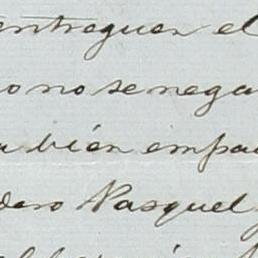 entreguen el
o no se nega
bién empa
dero Pasquel